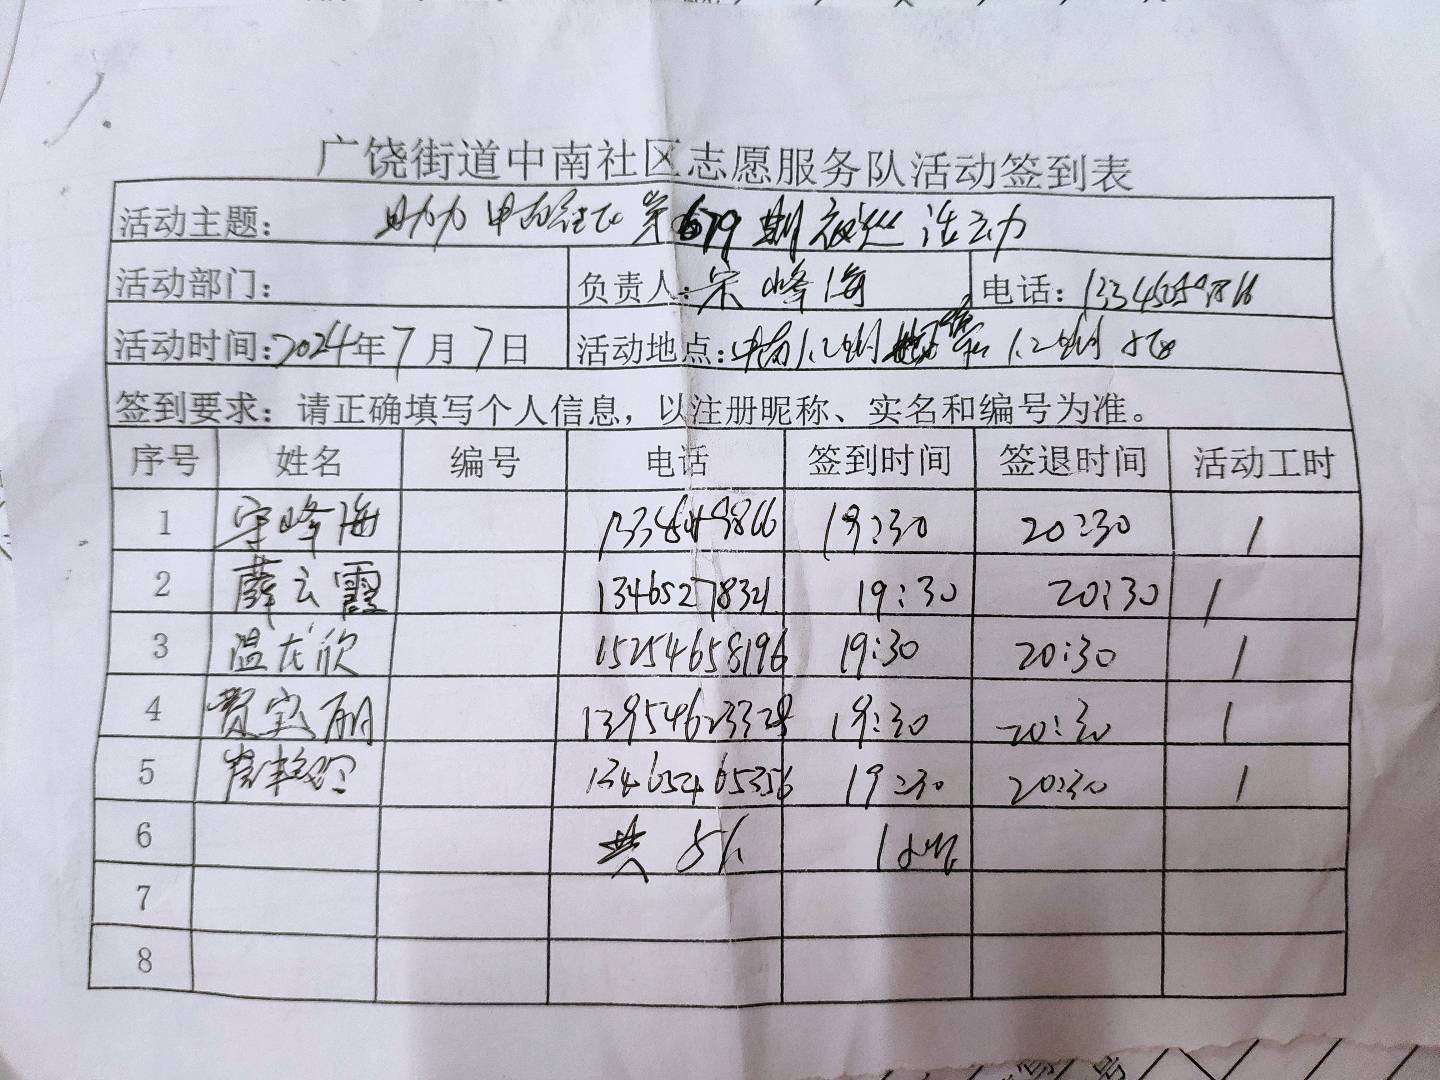 广饶街道中南社区志愿服务队活动签到表
活动主题： 助力中南社区第679期夜巡活动
活动部门： 负责人：宋峰海 电话：
活动时间：2024年7月7日 活动地点：中南1.2期 1.2期
签到要求：请正确填写个人信息，以注册昵称、实名和编号为准。
序号 姓名 编号 电话 签到时间 签退时间 活动工时
1 宋峰海 19:30 20:30 1
2 薛云霞 13465278321 19:30 20:30 1
3 温龙欣 15254658196 19:30 20:30 1
4 贾宝丽 13954623328 19:30 20:30 1
5 13465465356 19:30 20:30 1
6 共5人 1小时
7
8